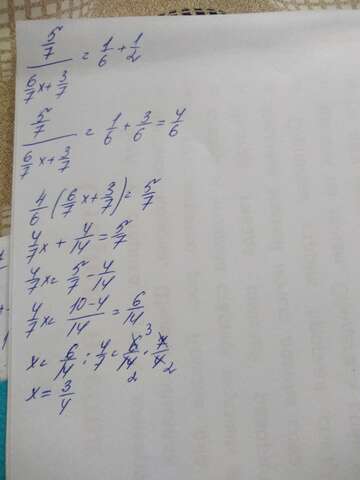 5/7 / (6/7 x + 3/7) = 1/6 + 1/2
5/7 / (6/7 x + 3/7) = 1/6 + 3/6 = 4/6
4/6 (6/7 x + 3/7) = 5/7
4/7 x + 4/14 = 5/7
4/7 x = 5/7 - 4/14
4/7 x = (10-4)/14 = 6/14
x = 6/14 : 4/7 = 6/14 · 7/4 3 2 2
x = 3/4